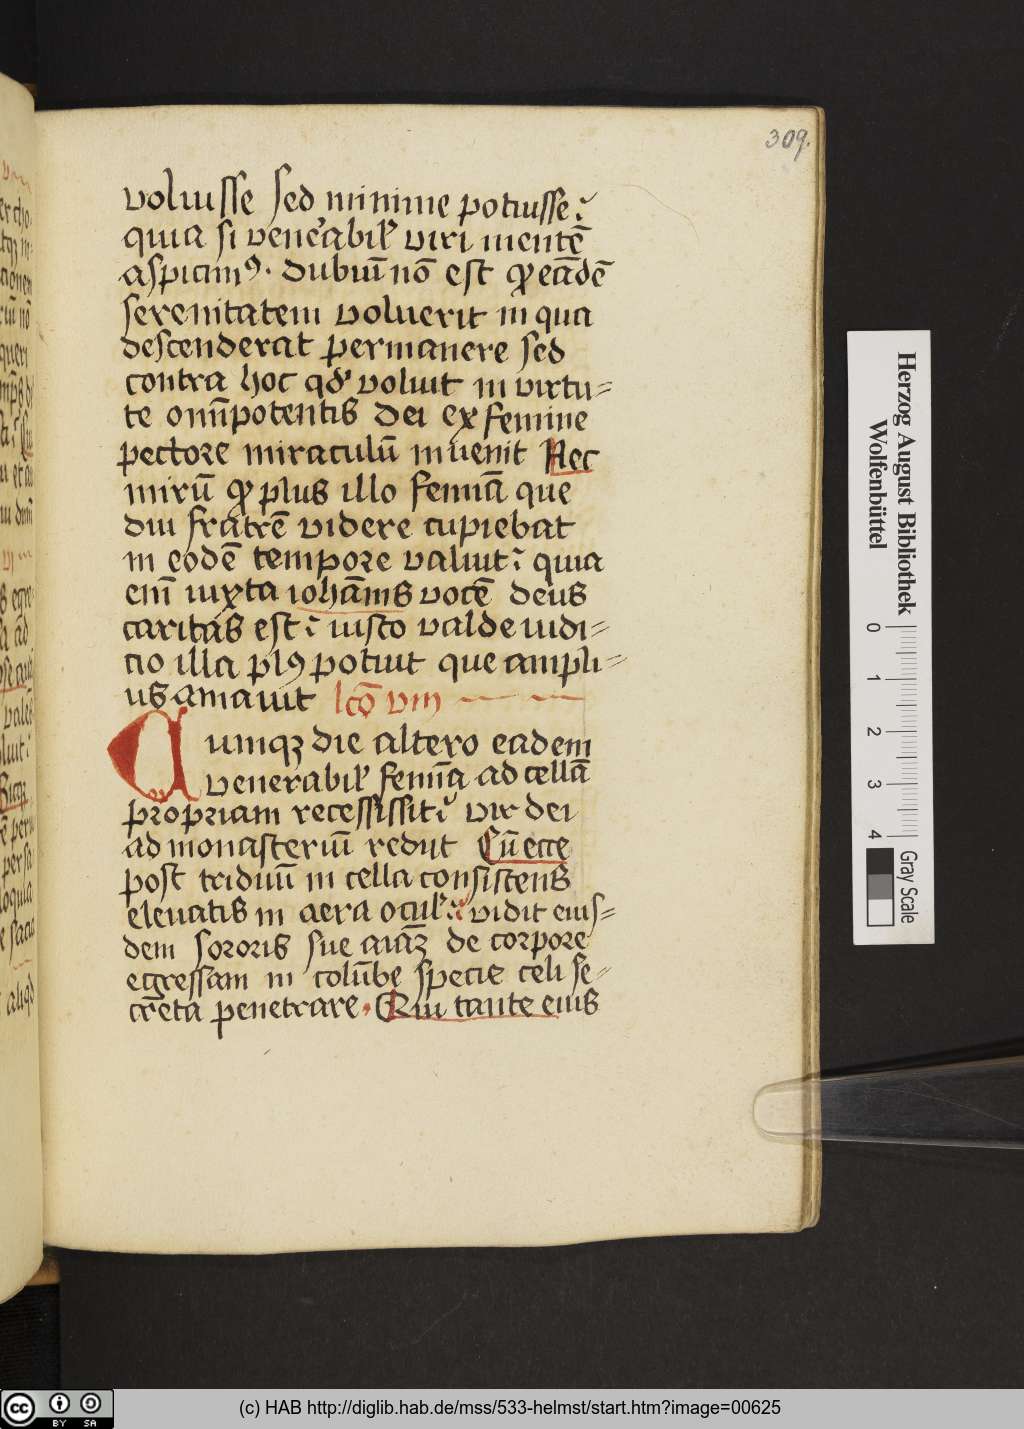 309.
voluisse sed minime potuisse
quia si veneʼabilʼ viri mentē
aspicimꝰ. dubiū nō est ꝙ eādē
serenitatem voluerit in qua
descenderat permanere sed
contra hoc qdʼ voluit in virtu⸗
te omīpotentis dei ex femine
pectore miraculū invenit Nec
mirū ꝙ plus illo femīa que
diu fratrē videre cupiebat
in eodē tempore valuit quia
enī iuxta iohānis vocē deus
caritas est iusto valde iudi⸗
cio illa plꝰ potuit que ampli⸗
us amavit lcō viii
Cumqꝫ die altero eadem
venerabilʼ femīa ad cellā
propriam recessissit vir dei
ad monasteriū rediit Cū ecce
post triduū in cella consistens
elevatis in aera oculʼ vidit eius⸗
dem sororis sue aīaꝫ de corpore
egressam in colūbe specie celi se⸗
creta penetrare. Qui tante eius
Herzog August Bibliothek
Wolfenbüttel
0 1 2 3 4
Gray Scale
cc BY SA
(c) HAB http://diglib.hab.de/mss/533-helmst/start.htm?image=00625